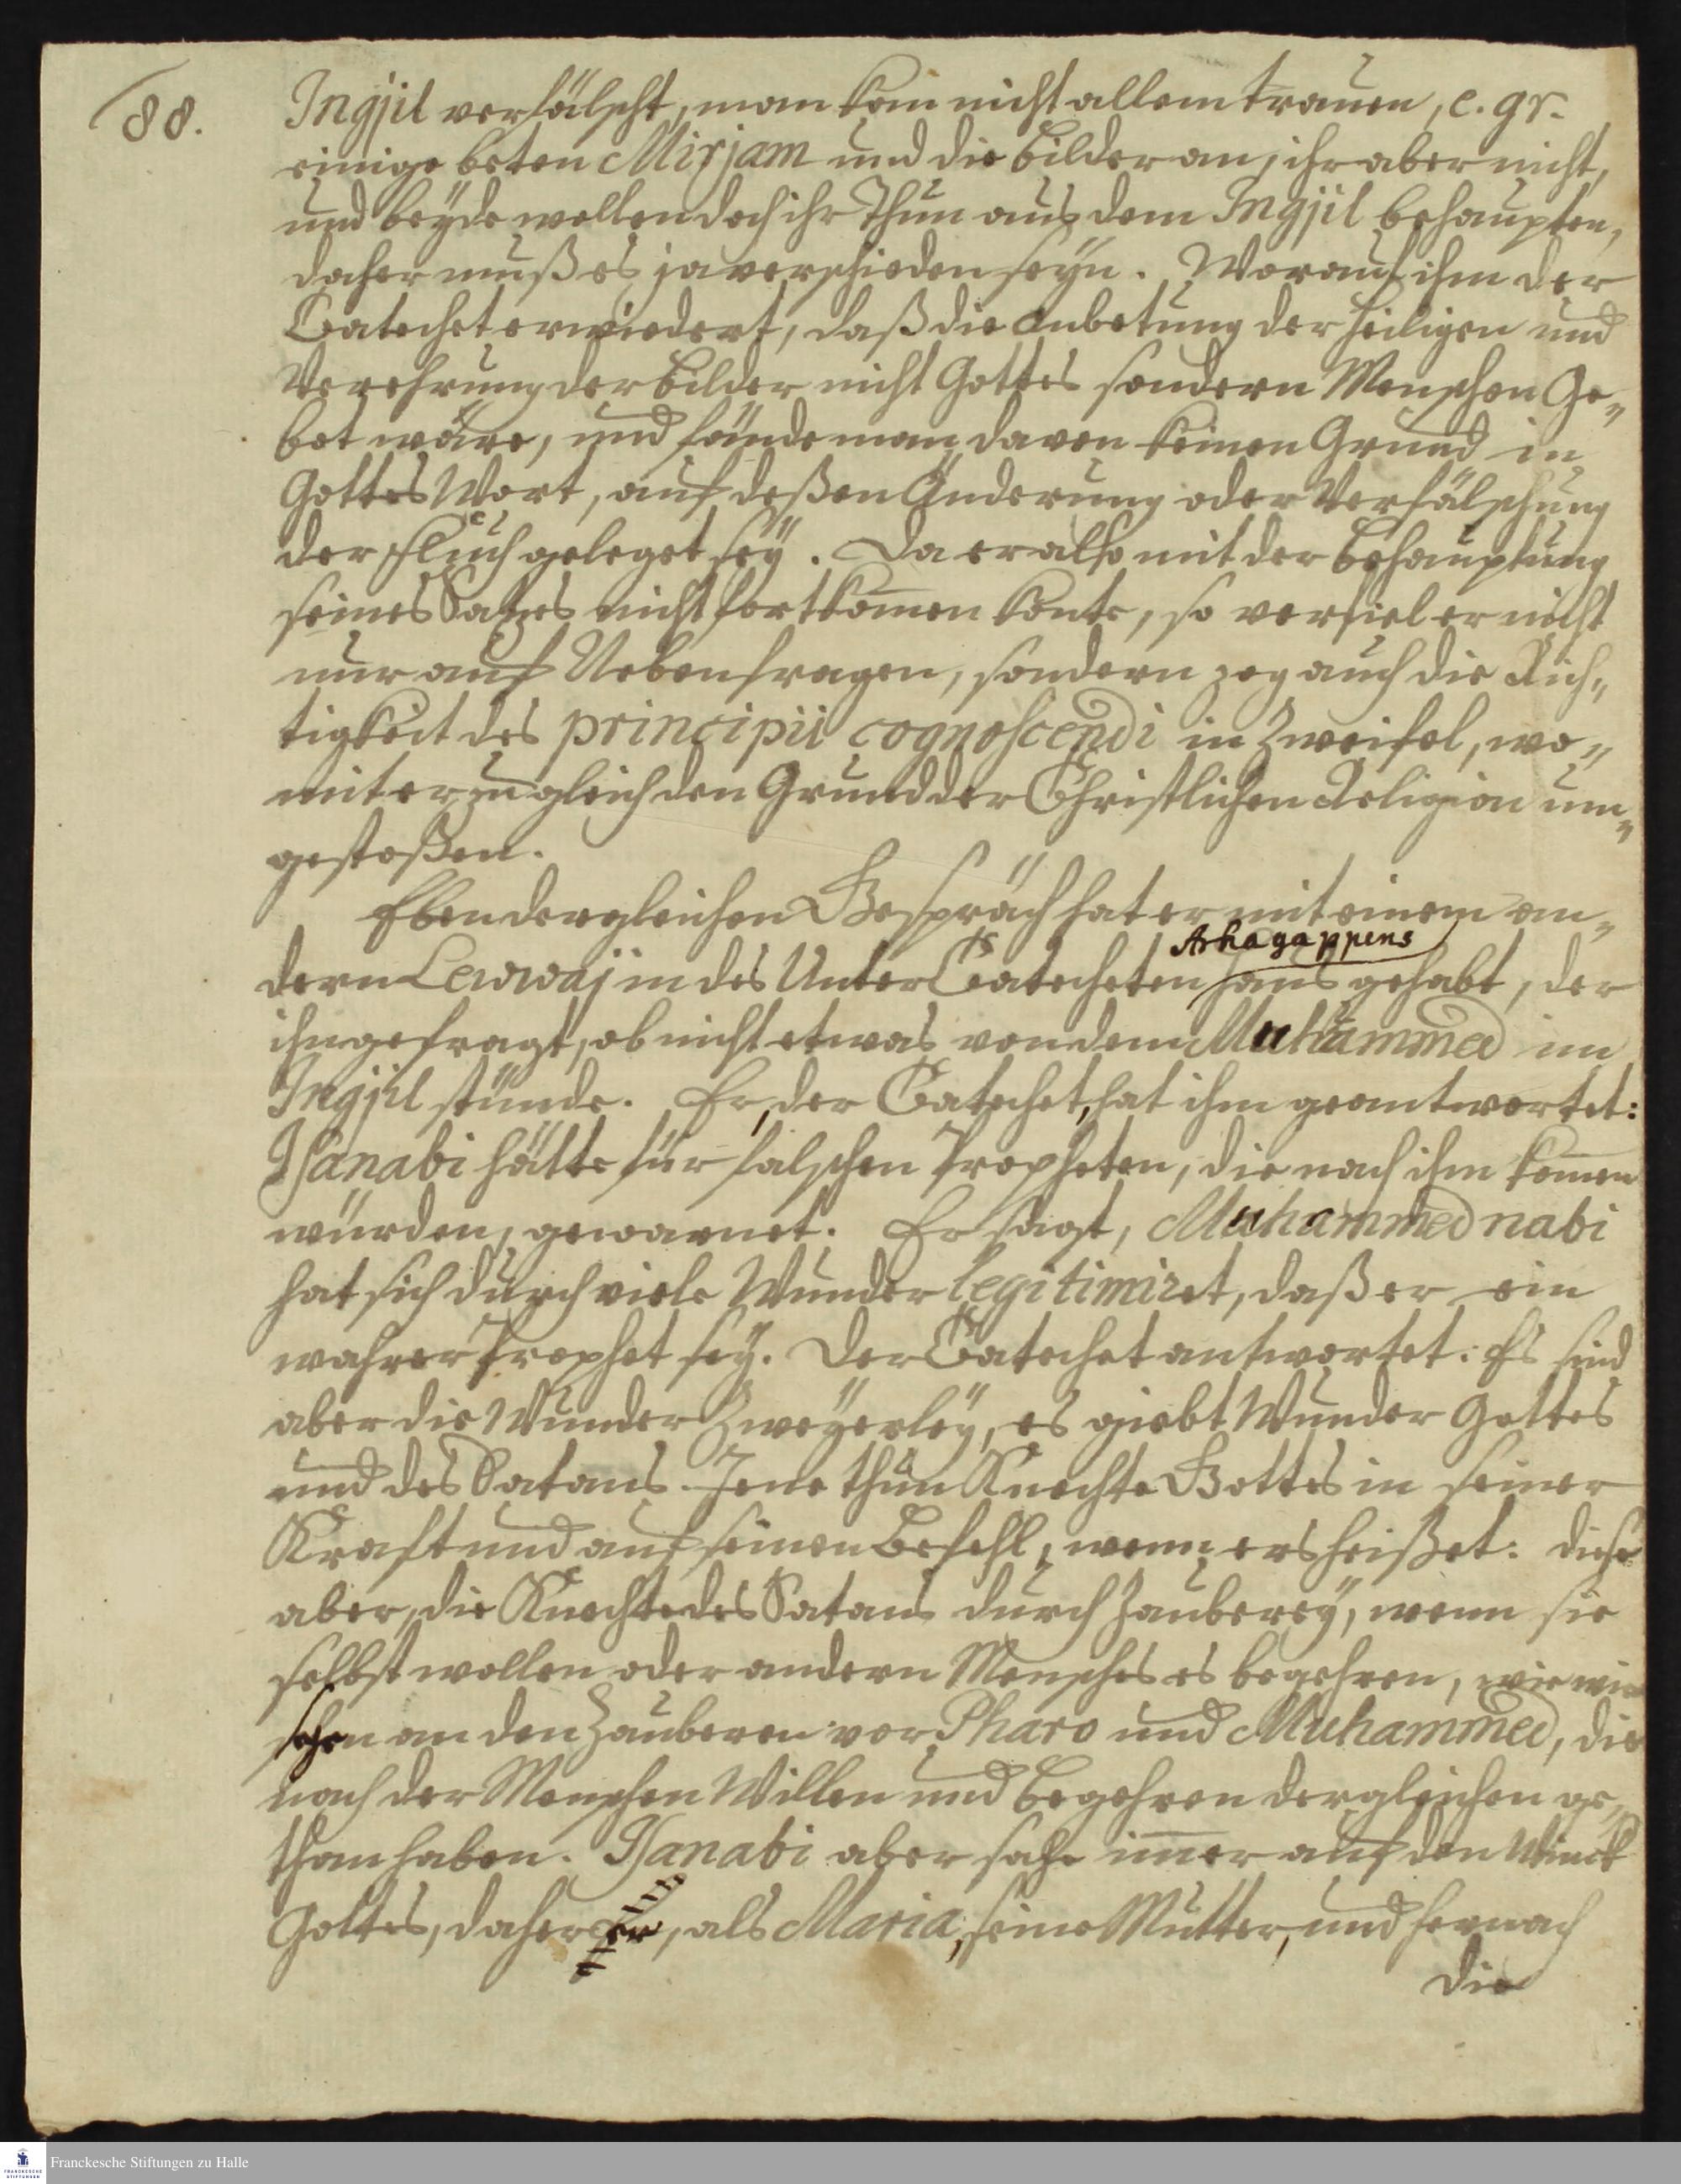 88.
Ingjil verfälscht, man kan nicht allem trauen, e. gr.
einige beten Mirjam und die Bilder an, ihr aber nicht,
und beÿde wollen doch ihr Thun aus dem Ingjil behaupten,
daher muß es ja verschieden seÿn. Worauf ihm der
Catechet erwiedert, daß die Anbetung der Heiligen und
Verehrung der Bilder nicht Gottes sondern Menschen Ge-
bot wäre, und fände man davon keinen Grund in
Gottes Wort, auf deßen Änderung oder Verfälschung
der Fluch geleget seÿ. Da er also mit der Behauptung
seines Satzes nicht fortkom̄en konte, so verfiel er nicht
nur auf Nebenfragen, sondern zog auch die Rich-
tigkeit des principii cognoscendi in Zweifel, wo-
mit er zugleich den Grund der Christlichen Religion um-
gestoßen.
Eben dergleichen Gespräch hat er mit einem an-
Arhagappens
dern Lewwaj in des Unter Catecheten Haus gehabt, der
ihn gefragt, ob nicht etwas von dem Muhammed im
Ingjil stünde. Er, der Catechet, hat ihm geantwortet:
Isanabi hätte für falschen Propheten, die nach ihm kom̄en
würden, gewarnet. Er sagt, Muhammed nabi
hat sich durch viele Wunder legitimiret, daß er ein
wahrer Prophet seÿ. Der Catechet antwortet: Es sind
aber die Wunder Zweÿerleÿ, es giebt Wunder Gottes
und des Satans. Jene thun Knechte Gottes in seiner
Kraft und auf seinen Befehl, wenn ers heißet: diese
aber, die Knechte des Satans durch Zaubereÿ, wenn sie
selbst wollen oder andern Menschen es begehren, wie wir
sehen an den Zauberen vor Pharo und Muhammed, die
nach der Menschen Willen und Begehren dergleichen ge-
than haben. Isanabi aber sahe im̄er auf den Winck
Gottes, daher er, als Maria, seine Mutter, und hernach
die
Franckesche Stiftungen zu Halle